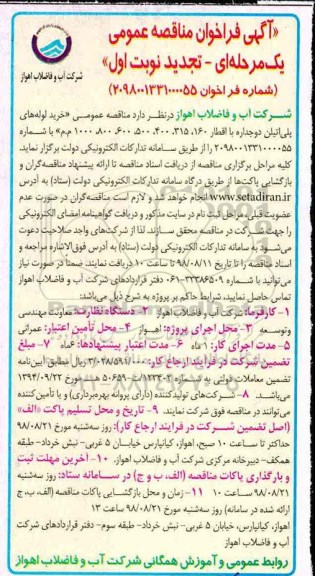 «آگهی فراخوان مناقصه عمومی
یک مرحله‌ای - تجدید نوبت اول»
(شماره فراخوان ۲۰۹۸۰۰۱۳۳۱۰۰۰۰۵۵)
شرکت آب و فاضلاب اهواز
شرکت آب و فاضلاب اهواز درنظر دارد مناقصه عمومی «خرید لوله‌های
پلی‌اتیلن دوجداره با اقطار ۱۶۰، ۳۱۵، ۴۰۰، ۵۰۰، ۶۰۰، ۸۰۰، ۱۰۰۰ م.م» با شماره
۲۰۹۸۰۰۱۳۳۱۰۰۰۰۵۵ را از طریق سامانه تدارکات الکترونیکی دولت برگزار نماید.
کلیه مراحل برگزاری مناقصه از دریافت اسناد مناقصه تا ارائه پیشنهاد مناقصه‌گران و
بازگشایی پاکت‌ها از طریق درگاه سامانه تدارکات الکترونیکی دولت (ستاد) به آدرس
www.setadiran.ir انجام خواهد شد و لازم است مناقصه‌گران در صورت عدم
عضویت قبلی، مراحل ثبت نام در سایت مذکور و دریافت گواهینامه امضای الکترونیکی
را جهت شرکت در مناقصه محقق سازند. لذا از شرکت‌های واجد صلاحیت دعوت
می‌شود به سامانه تدارکات الکترونیکی دولت (ستاد) به آدرس فوق‌الاشاره مراجعه و
اسناد مناقصه را تا تاریخ ۹۸/۰۸/۱۱ تا ساعت ۱۰ دریافت نمایند. ضمناً در صورت نیاز
می‌توانید با شماره ۳۳۳۸۶۵۰۹-۰۶۱ دفتر قراردادهای شرکت آب و فاضلاب اهواز
تماس حاصل نمایید، شرایط حاکم بر پروژه به شرح ذیل می‌باشد:
۱- کارفرما: شرکت آب و فاضلاب اهواز ۲- دستگاه نظارت: معاونت مهندسی
وتوسعه ۳- محل اجرای پروژه: اهواز ۴- محل تأمین اعتبار: عمرانی
۵- مدت اجرای کار: ۱ ماه ۶- مدت اعتبار پیشنهادها: ۶ماه ۷- مبلغ
تضمین شرکت در فرایند ارجاع کار: ریال مطابق آیین‌نامه
تضمین معاملات دولتی به شماره مورخ ۱۳۹۴/۰۹/۲۲
می‌باشد. ۸- شرکت‌های تولیدکننده (دارای پروانه بهره‌برداری) و یا تأمین‌کننده
می‌توانند در مناقصه فوق شرکت نمایند. ۹- تاریخ و محل تسلیم پاکت «الف»
(اصل تضمین شرکت در فرایند ارجاع کار): روز سه‌شنبه مورخ ۹۸/۰۸/۲۱
حداکثر تا ساعت ۱۰ صبح، اهواز، کیانپارس خیابان ۵ غربی- نبش خرداد- طبقه
همکف- دبیرخانه مرکزی شرکت آب و فاضلاب اهواز. ۱۰- آخرین مهلت ثبت
و بارگذاری پاکات مناقصه (الف، ب و ج) در سامانه ستاد: روز سه‌شنبه
۹۸/۰۸/۲۱ ساعت ۱۰ ۱۱- زمان و محل بازگشایی پاکات مناقصه (الف، ب، ج
ارائه شده در سامانه) روز سه‌شنبه مورخ ۹۸/۰۸/۲۱ ساعت ۱۳
اهواز، کیانپارس، خیابان ۵ غربی- نبش خرداد- طبقه سوم- دفتر قراردادهای شرکت
آب و فاضلاب اهواز
روابط عمومی و آموزش همگانی شرکت آب و فاضلاب اهواز